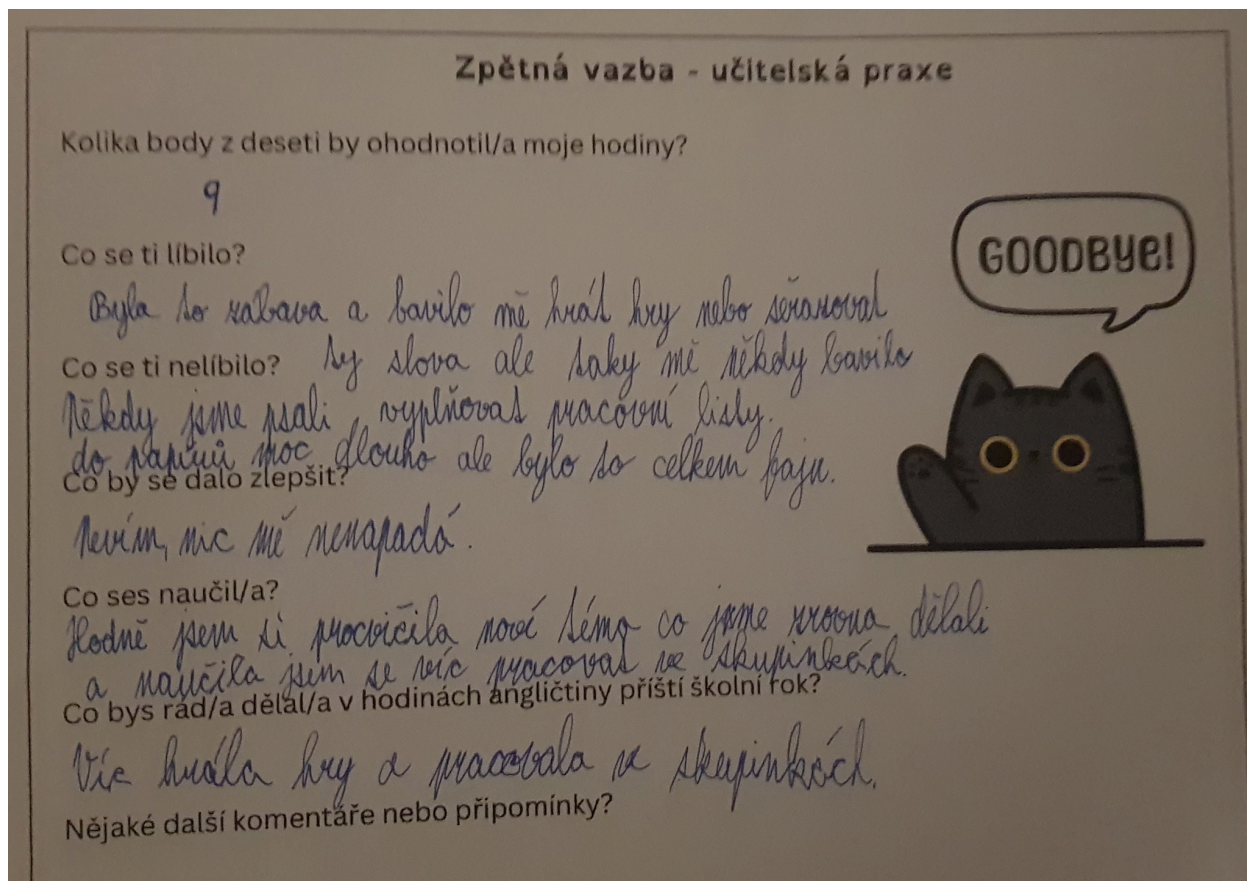 Zpětná vazba - učitelská praxe
Kolika body z deseti by ohodnotil/a moje hodiny?
9
GOODBYE!
Co se ti líbilo?
Byla to zabava a bavilo mě hrát hry nebo seřazovat
ty slova ale taky mě někdy bavilo
vyplňovat pracovní listy.
Co se ti nelíbilo?
Někdy jsme psali
do papírů moc dlouho ale bylo to celkem fajn.
Co by se dalo zlepšit?
Nevím, nic mě nenapadá.
Co ses naučil/a?
Hodně jsem si procvičila nové téma co jsme zrovna dělali
a naučila jsem se víc pracovat ve skupinkách.
Co bys rád/a dělal/a v hodinách angličtiny příští školní rok?
Víc hrála hry a pracovala ve skupinkách.
Nějaké další komentáře nebo připomínky?